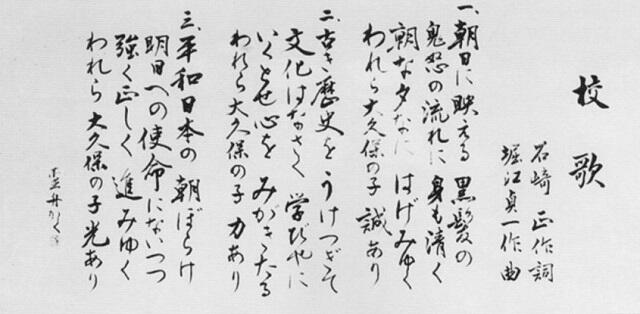 校歌
石崎正作詞
堀江貞一作曲
一、朝日に映える黒髪の
鬼怒の流れに身も清く
朝な夕なにはげみゆく
われら大久保の子誠あり
二、古き歴史をうけつぎて
文化はなさく学びやに
いくとせ心をみがきたる
われら大久保の子力あり
三、平和日本の朝ぼらけ
明日への使命にないつつ
強く正しく進みゆく
われら大久保の子光あり